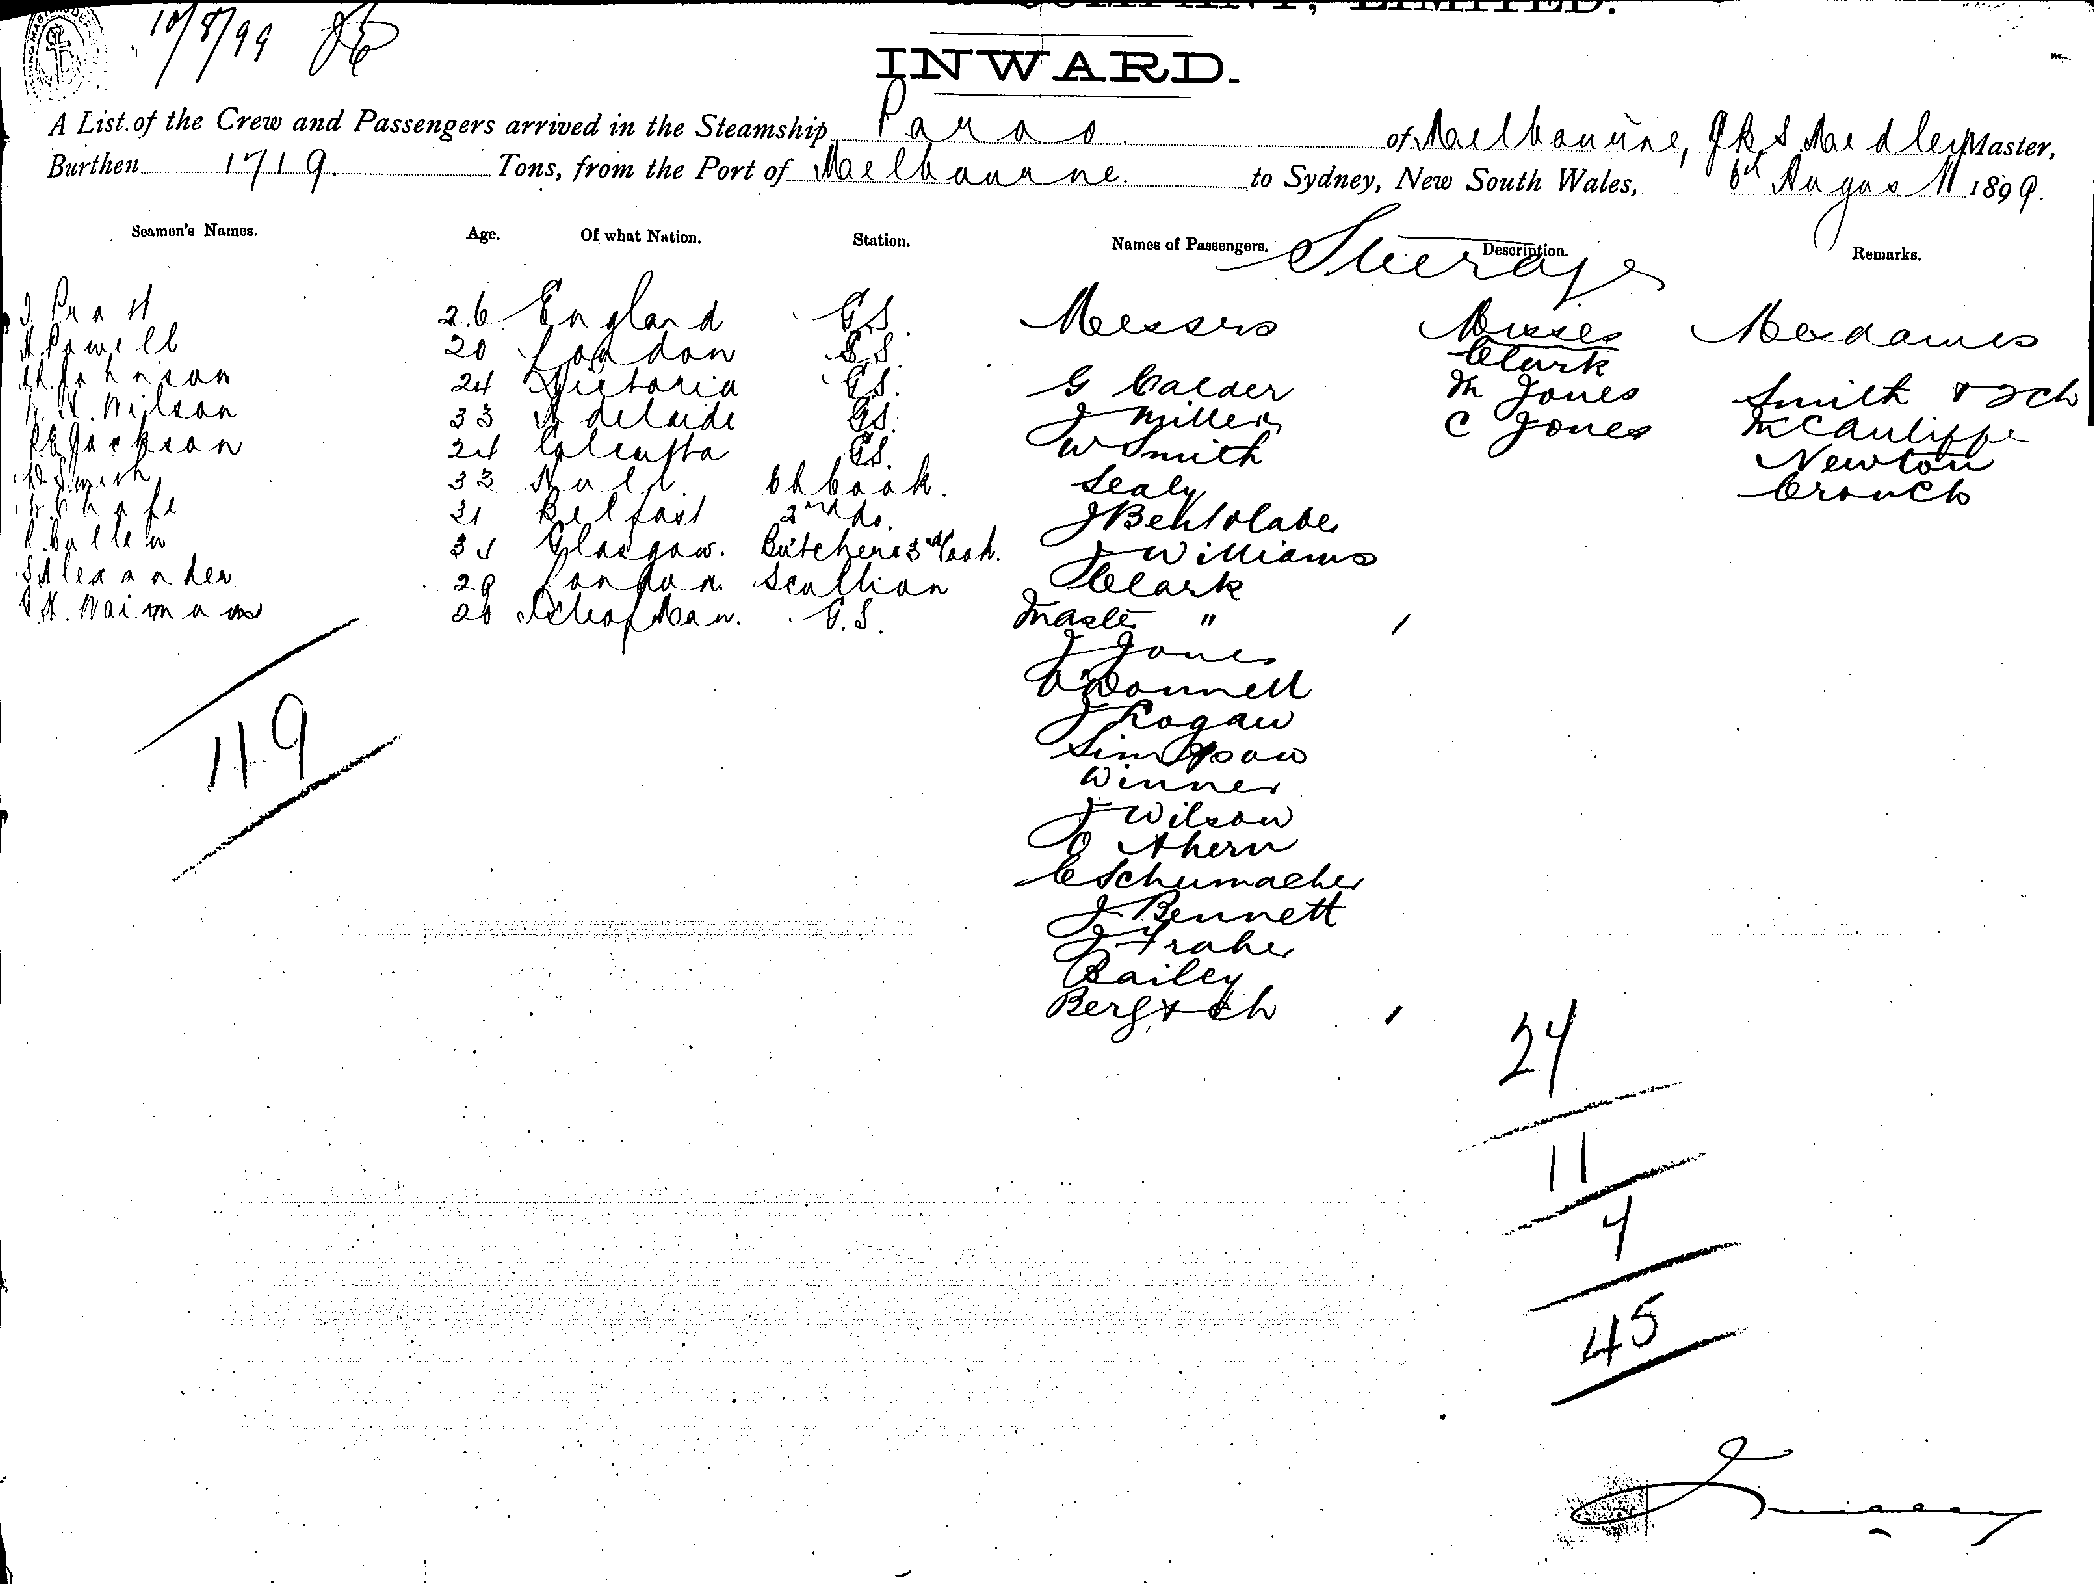 10/8/99
COMPANY, LIMITED.
INWARD.
A List of the Crew and Passengers arrived in the Steamship Paroo of Melbourne, Medley Master,
Burthen 1719. Tons, from the Port of Melbourne. to Sydney, New South Wales, August 1899.
Seamen's Names. Age. Of what Nation. Station. Names of Passengers. Steerage Description. Remarks.
26 England G.S. Messrs Misses Mesdames
Powell 20 London Clark
Johnson 24 Victoria G.S. G Calder M Jones Smith & 2 ch
Wilson 33 Adelaide G.S. J Miller C Jones McAuliffe
Jackson 24 Calcutta G.S. W Smith Newton
33 Hull Ch Cook. Sealy Crouch
31 Belfast 2nd do. J Bentolabe
Cullen Glasgow. Butcher & 3rd Cook. J Williams
Alexander 29 London Scullion J Clark
20 Isle of Man. G.S. Master "
J Jones
O'Donnell
119 J Logan
Simpson
Winner
J Wilson
O Ahern
C Schumacher
J Bennett
J Fraher
Bailey
Berg & ch
24
11
4
45